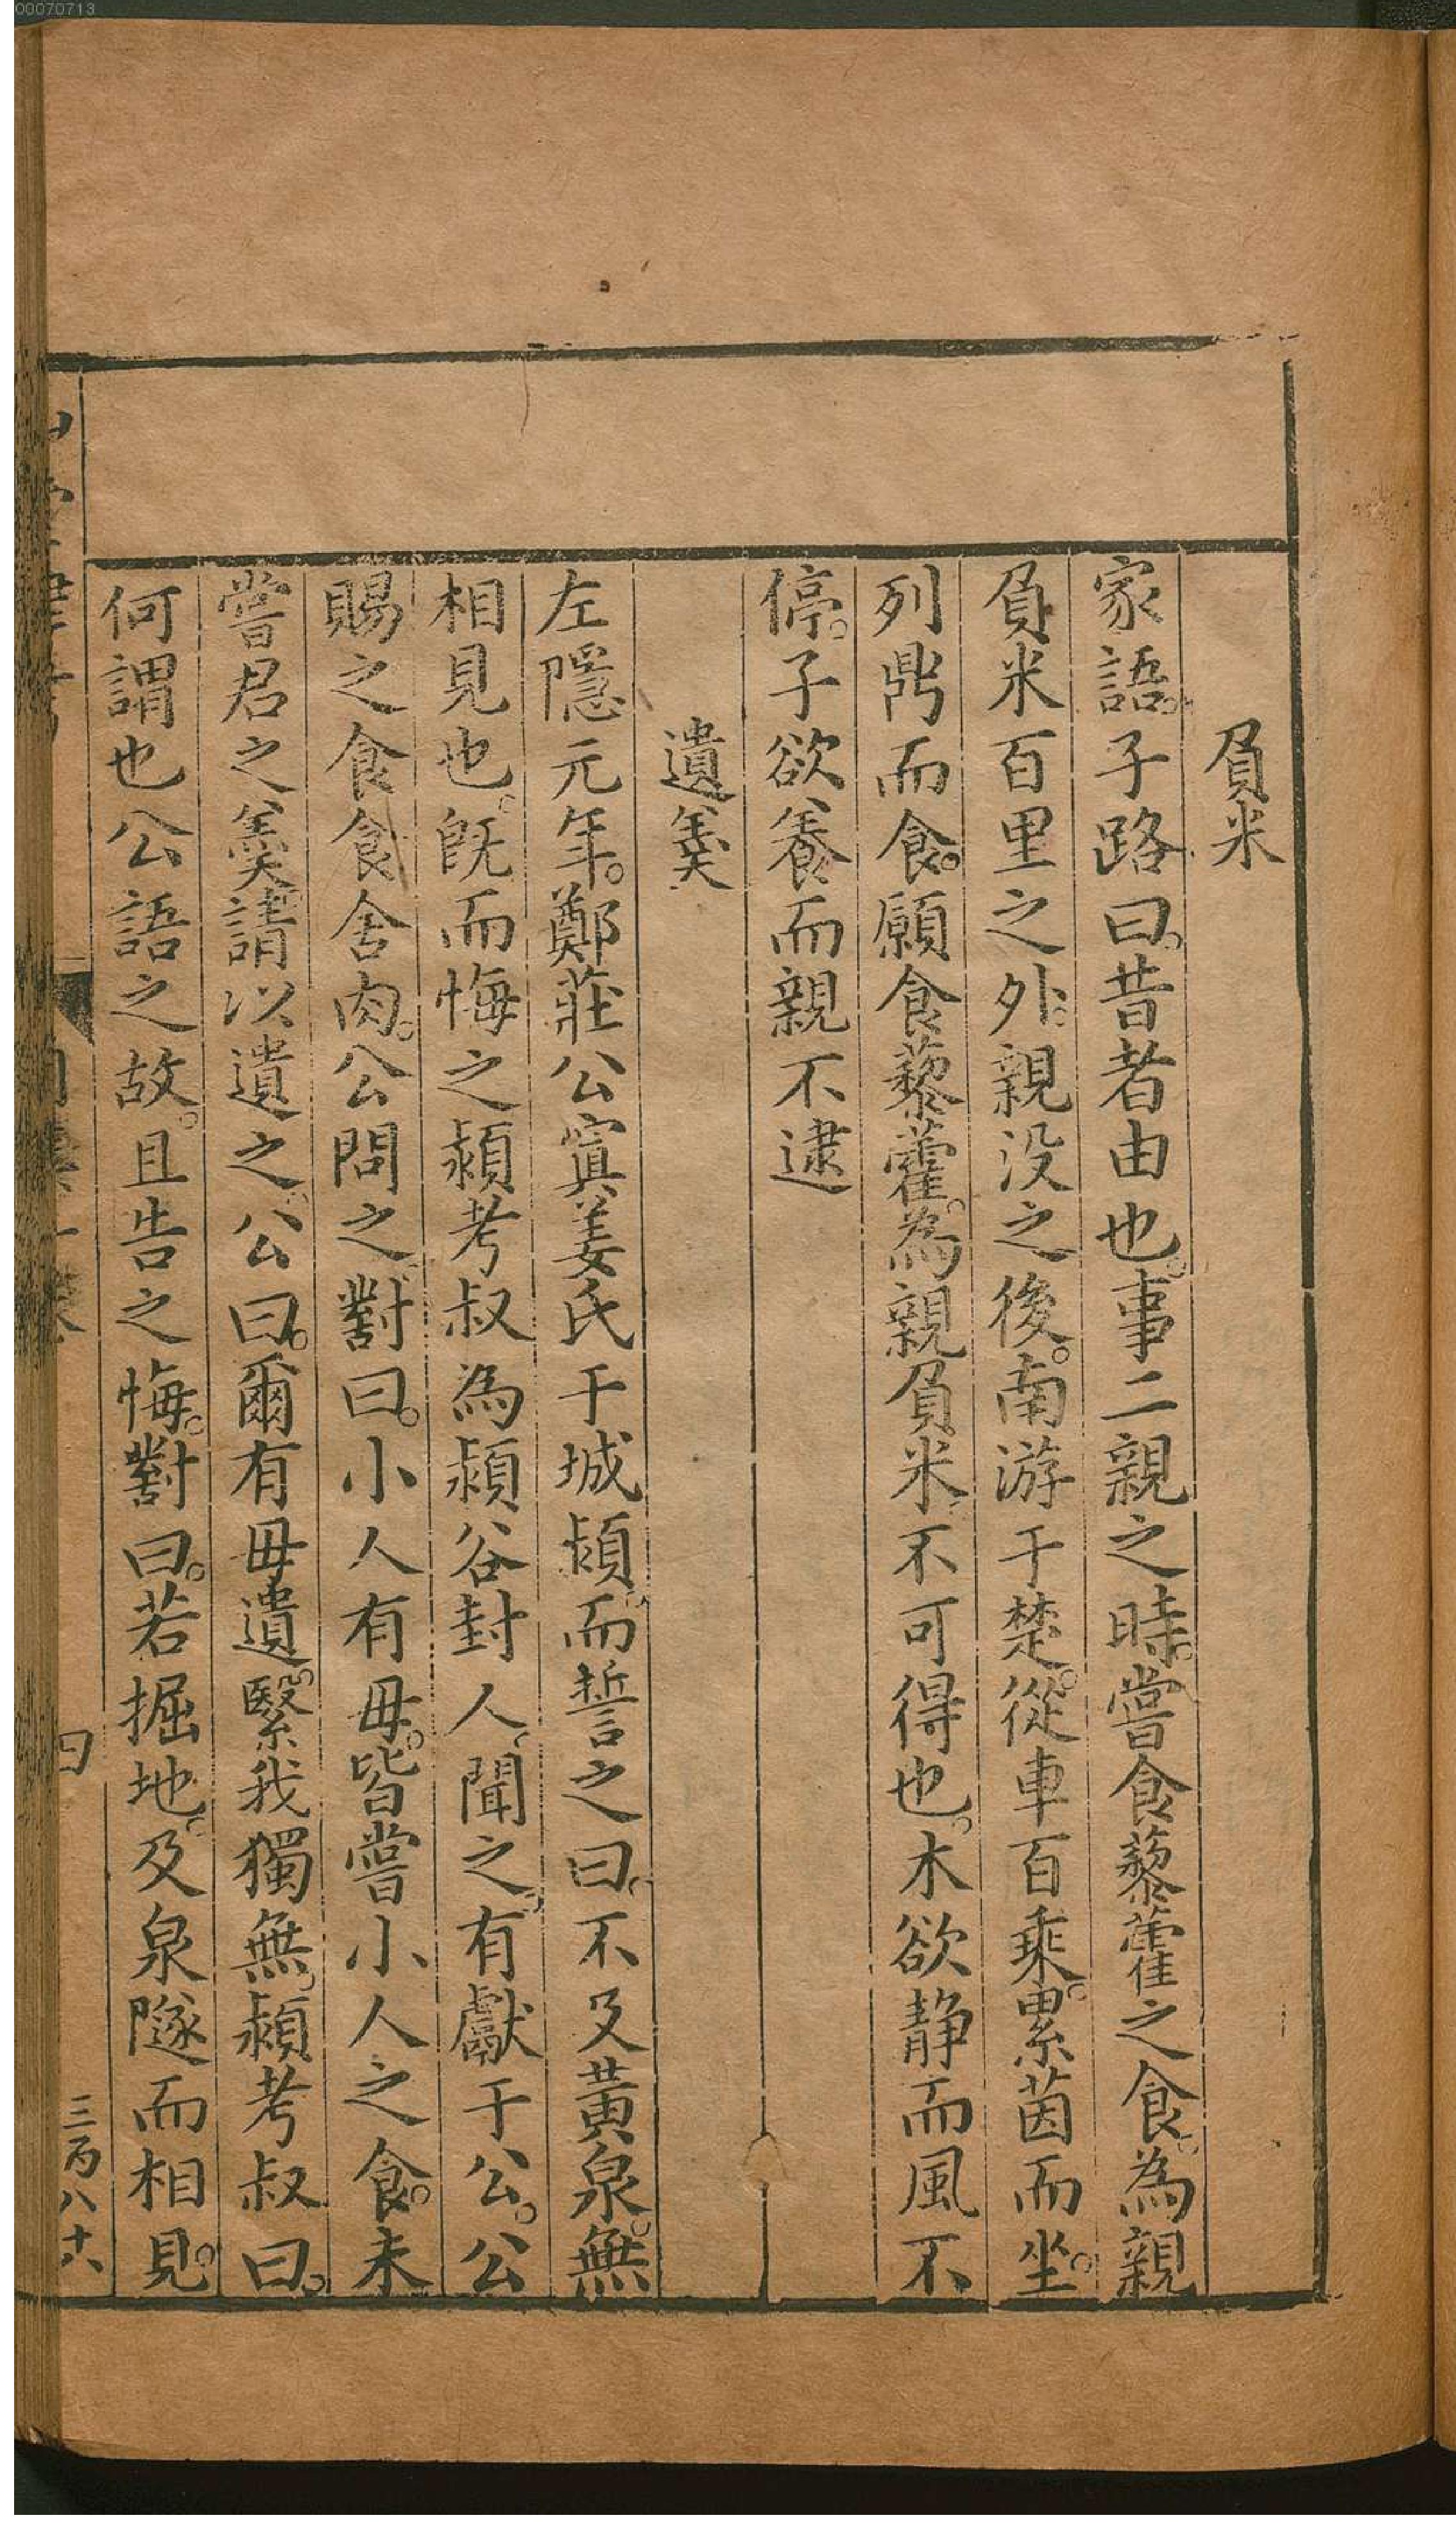 00070713
負米
家語。子路曰。昔者由也。事二親之時。嘗食藜藿之食。為親
負米百里之外。親没之後。南游于楚。從車百乘。累茵而坐。
列鼎而食。願食藜藿。為親負米。不可得也。木欲静而風不
停。子欲養而親不逮
遺羹
左隱元年。鄭莊公寘姜氏于城潁。而誓之曰。不及黄泉。無
相見也。旣而悔之。潁考叔為潁谷封人。聞之。有獻于公。公
賜之食。食舍肉。公問之。對曰。小人有母。皆嘗小人之食。未
嘗君之羹。請以遺之。公曰。爾有母遺。繄我獨無。潁考叔曰。
何謂也。公語之故。且告之悔。對曰。若掘地。及泉隧而相見。
三百八十六